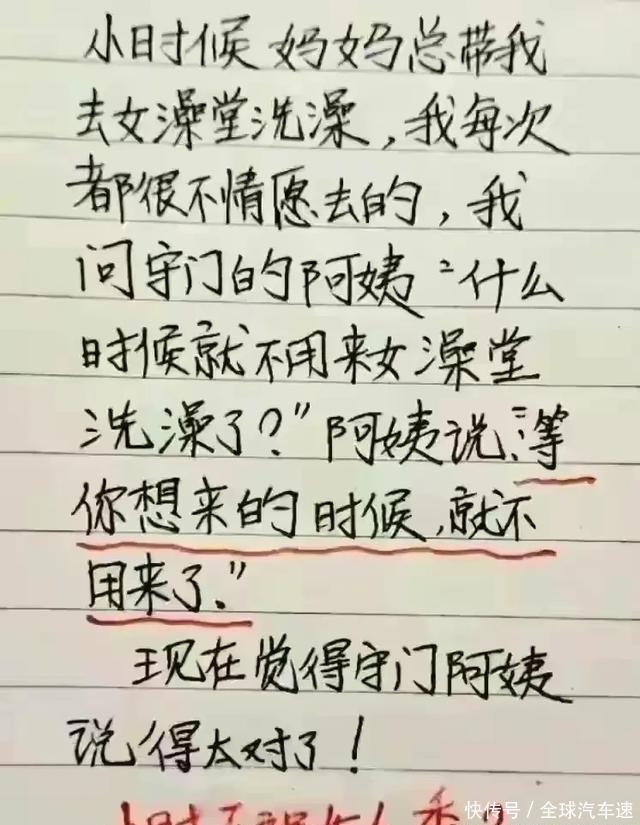 小时候妈妈总带我
去女澡堂洗澡，我每次
都很不情愿去的，我
问守门的阿姨“什么
时候就不用来女澡堂
洗澡了？”阿姨说：“等
你想来的时候，就不
用来了。”
现在觉得守门阿姨
说得太对了！
快传号/全球汽车速